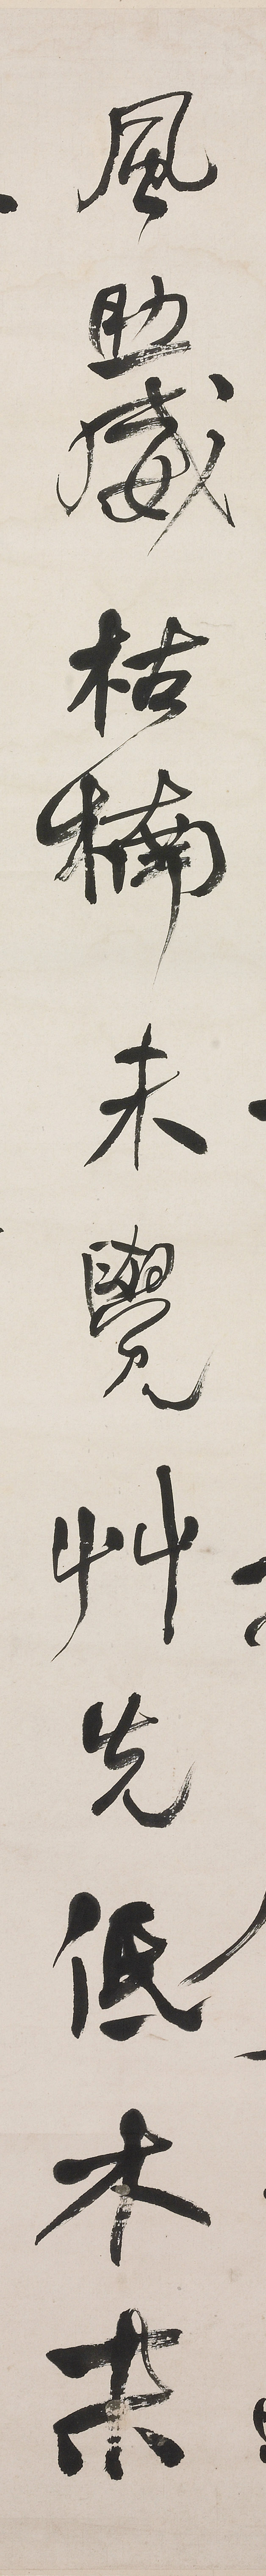 風助威枯楠未覺艸先低木末